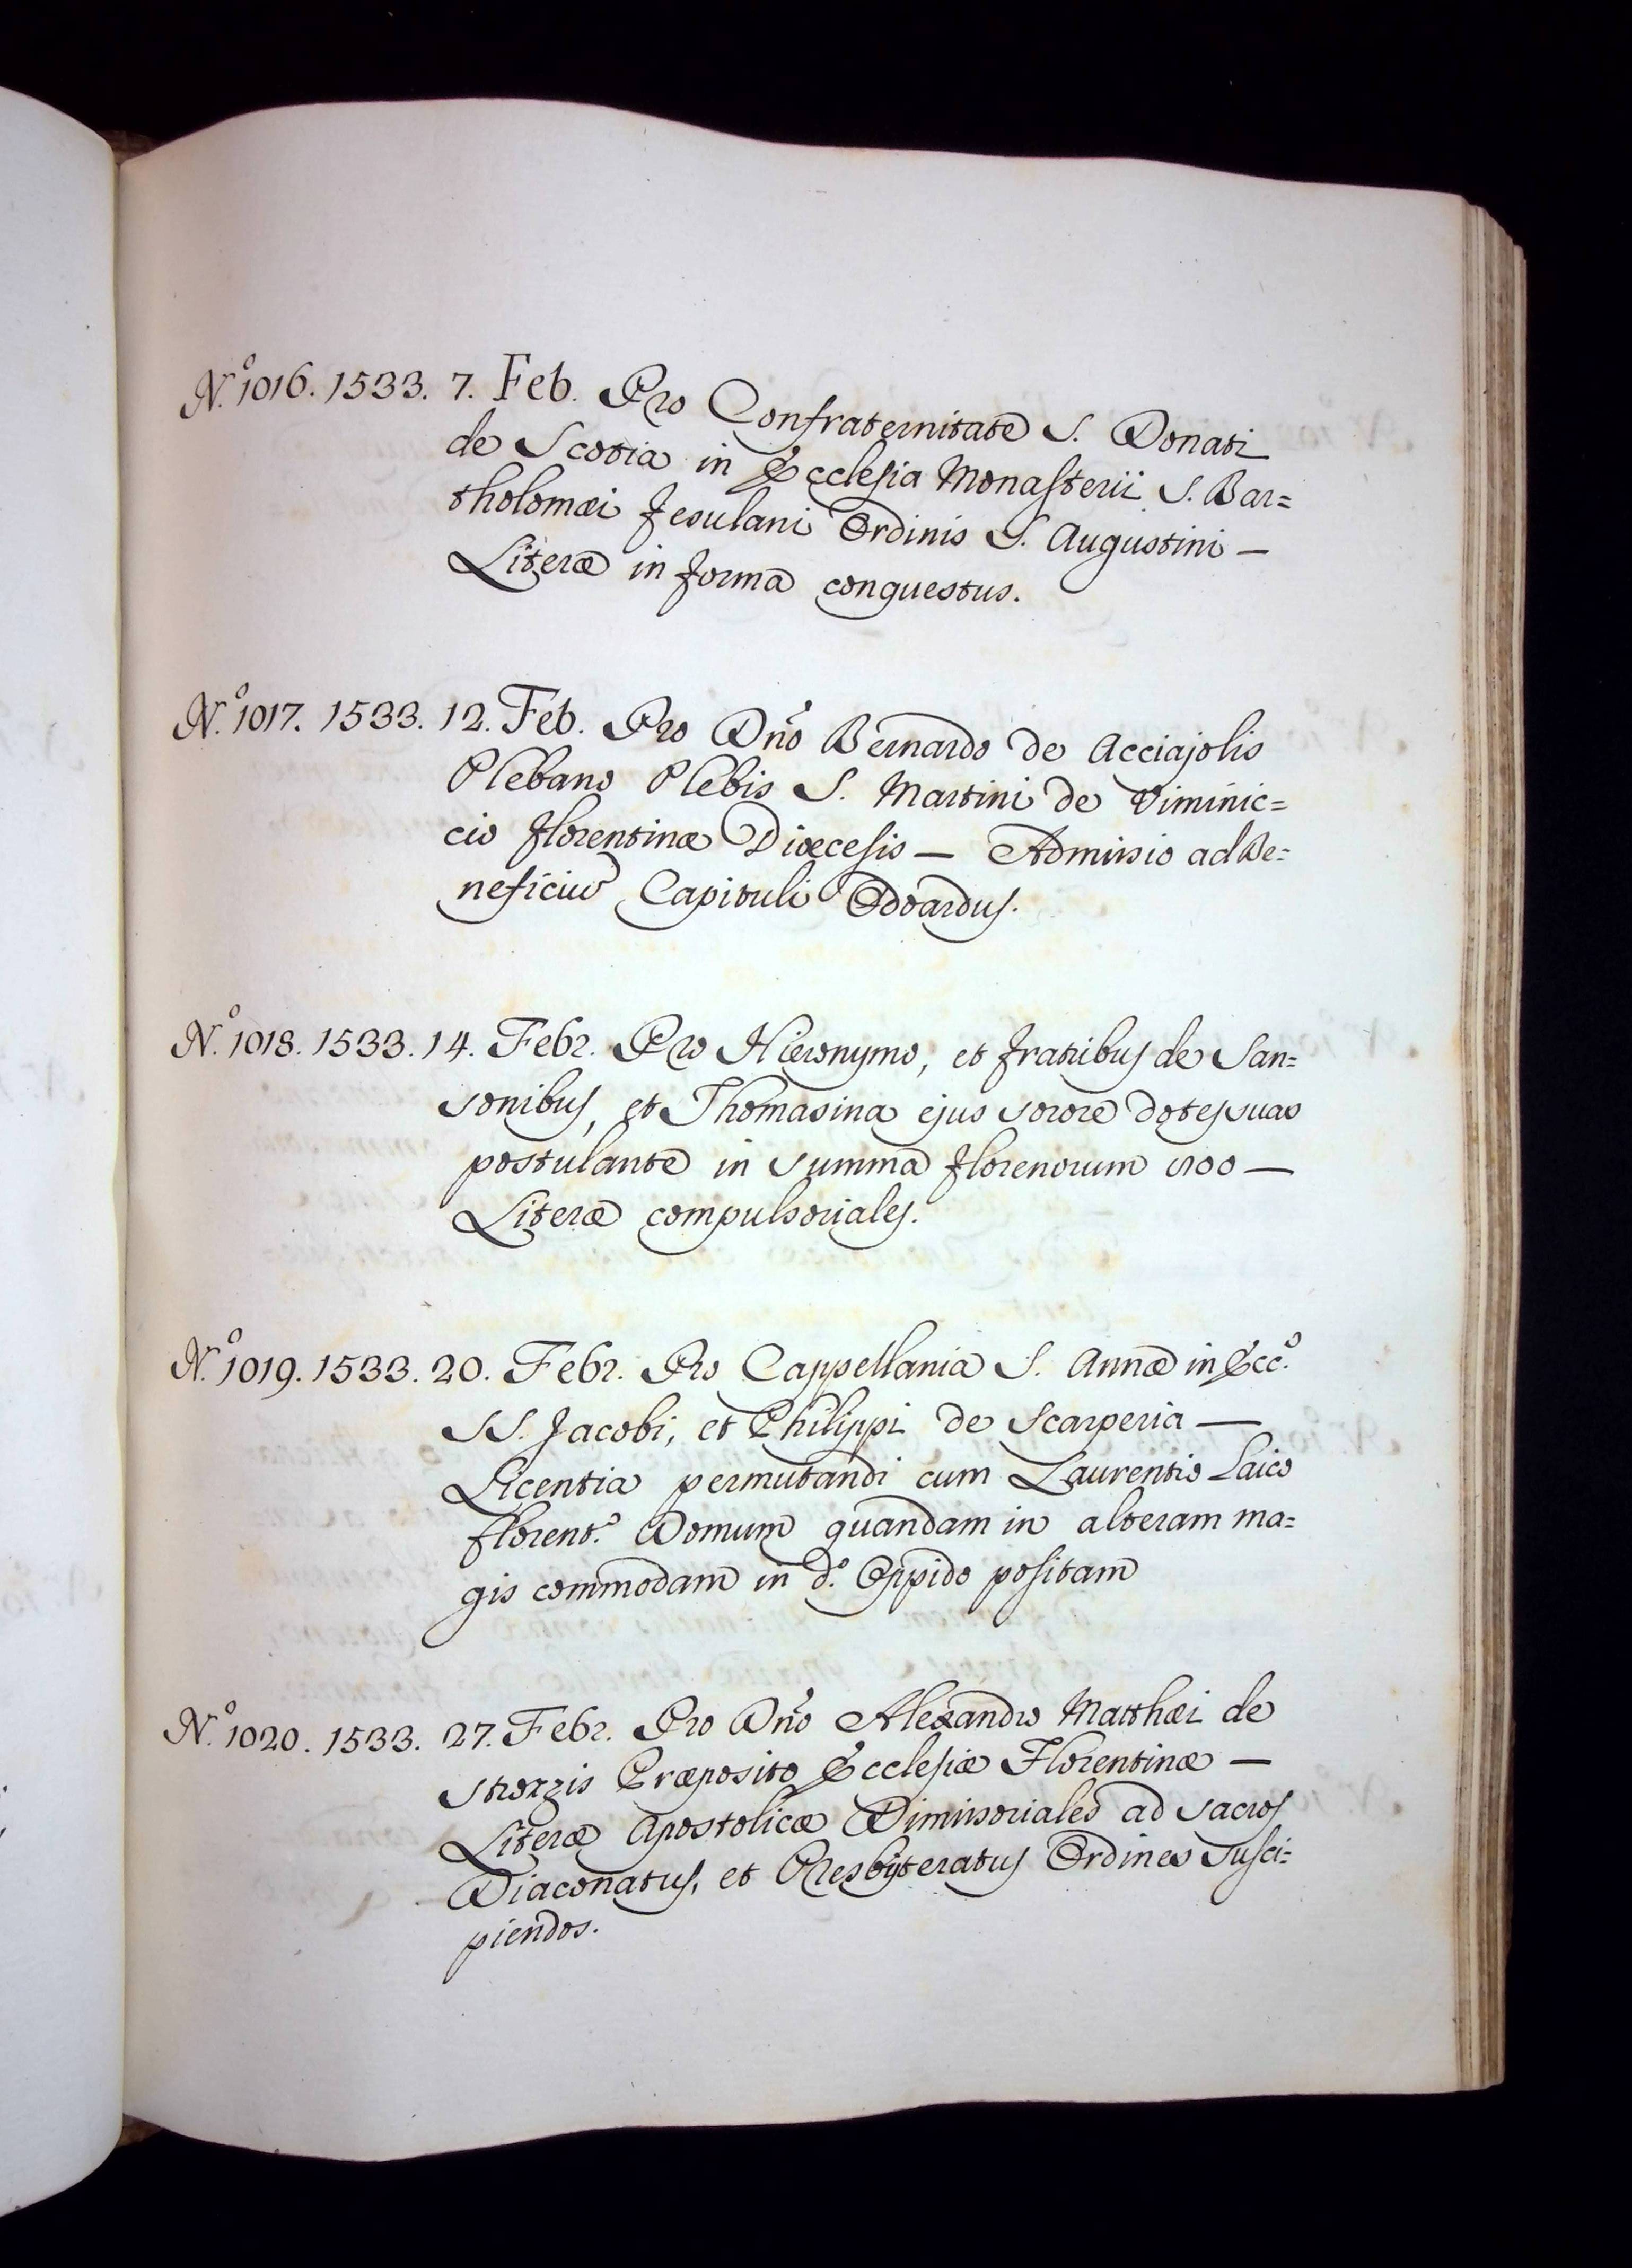 N.º 1016. 1533. 7. Feb. Pro Confraternitate S. Donati
de Scotia in Ecclesia Monasterii S. Bar=
tholomæi Fesulani Ordinis S. Augustini —
Literæ in forma conquestus.
N.º 1017. 1533. 12. Feb. Pro Dño Bernardo de Acciajolis
Plebano Plebis S. Martini de Viminic=
cio Florentinæ Diœcesis — Admissio ad Be=
neficiũ Capituli Odoardus.
N.º 1018. 1533. 14. Febr. Pro Hieronymo, et fratribus de San=
sonibus, et Thomasina ejus sorore dotes suas
postulante in summa florenorum
Literæ compulsoriales.
N.º 1019. 1533. 20. Febr. Pro Cappellania S. Annæ in Ecc.ª
SS. Jacobi, et Philippi de Scarperia —
Licentia permutandi cum Laurentio Laico
Florent.º Domum quandam in alteram ma=
gis commodam in d.º Oppido positam
N.º 1020. 1533. 27. Febr. Pro Dño Alexandro Matthæi de
Strozzis Præposito Ecclesiæ Florentinæ —
Literæ Apostolicæ Dimissoriales ad sacros
Diaconatus, et Presbyteratus Ordines susci=
piendos.